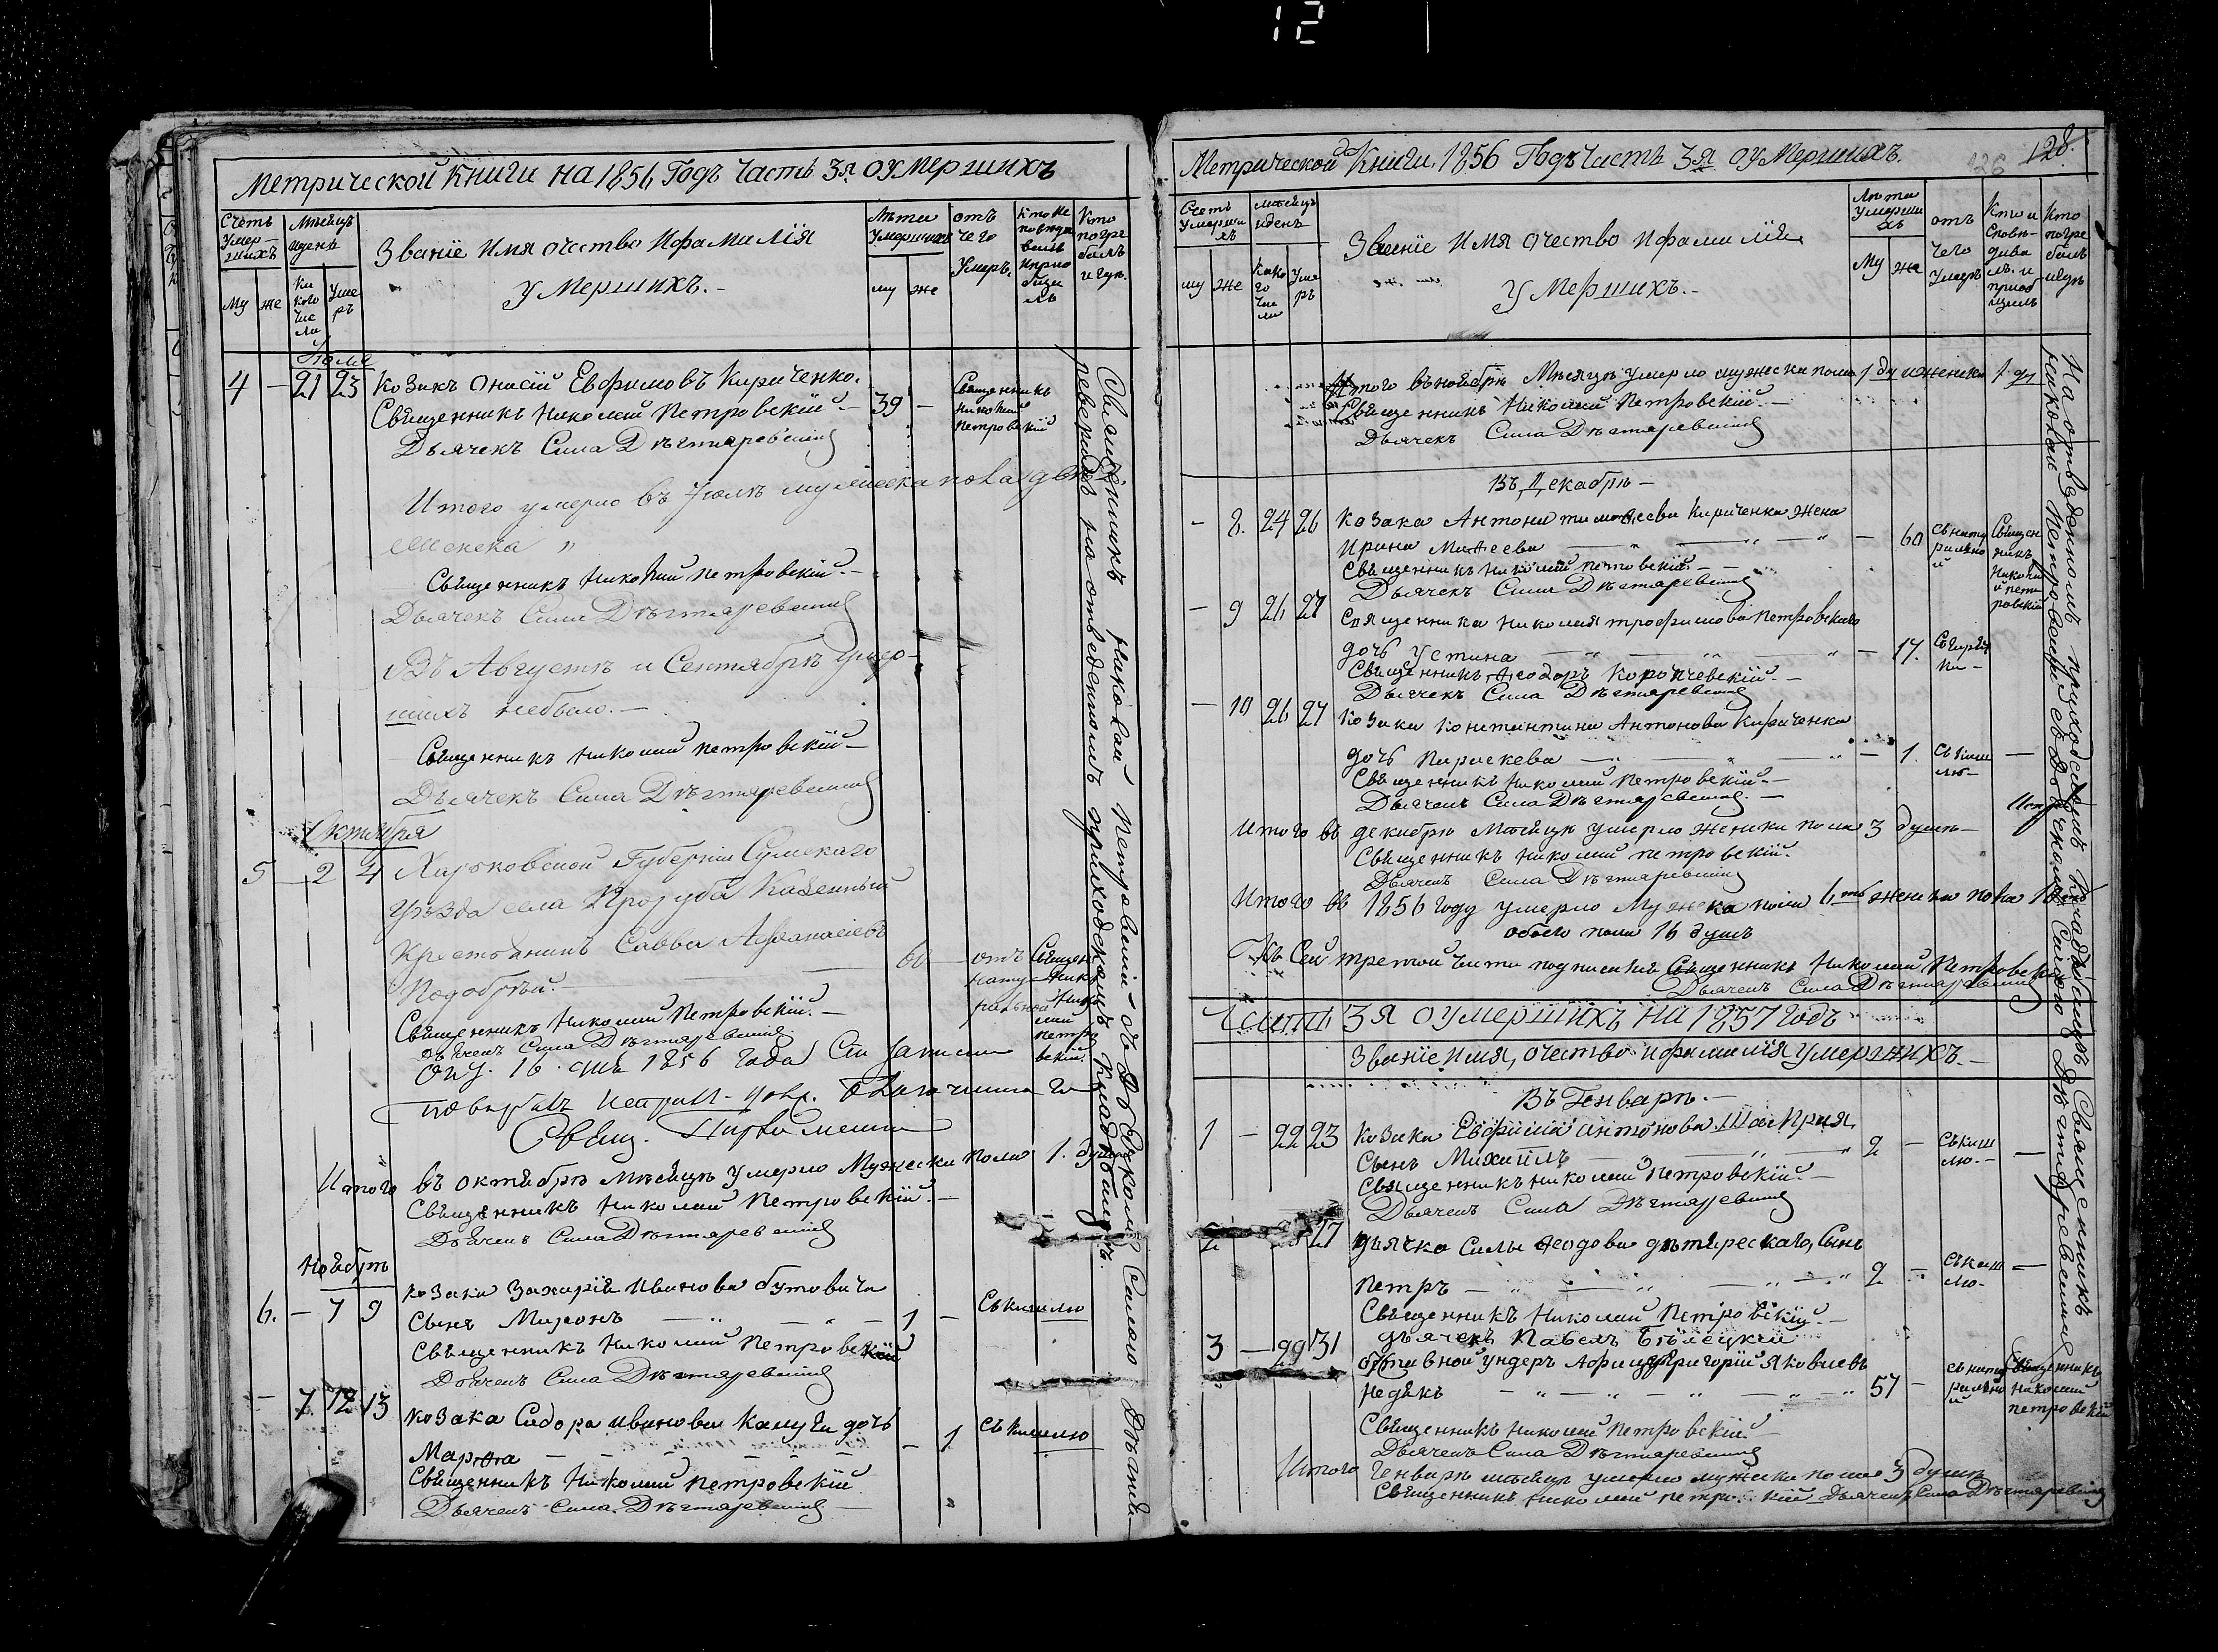 12
Метрической книги на 1856 Годъ Часть 3я о умершихъ
Счетъ умер-шихъ
Мѣсяцъ и день
Званіе имя очество и фамилія
умершихъ.-
Лѣта умершихъ
отъ чего умеръ.
Кто погре балъ и гдѣ.
му же
Ка кого чис ла
Уме ръ
му же
Іюля
4 - 21 23 Козакъ Онисій Евфимовъ Кириченко.
39 -
Священникъ Николай Петровскій
Священникъ Николай Петровскій.-
Дьячекъ Сила Дѣгтяревскій
Итого умерло въ Іюлѣ мужеска пола
женска "
Священникъ Николай Петровскій.-
Дьячекъ Сила Дѣгтяревскій
Въ Августѣ и Сентябрѣ умер-
шихъ небыло.-
Священникъ Николай Петровскій-
Дьячекъ Сила Дѣгтяревскій
Октября
5 - 2 4 Харьковской Губерніи Сумскаго
уѣзда села Казенный
Крестьянинъ Савва Афанасіевъ
60 - отъ натуральной
Священникъ Николай Петровскій.
Священникъ Николай Петровскій.-
Дьячекъ Сила Дѣгтяревскій
16. дня 1856 года Сіи записи
повѣрялъ
Свящ.
Итого въ октябрѣ мѣсяцѣ умерло Мужеска пола 1. душа
Священникъ Николай Петровскій.-
Дьячекъ Сила Дѣгтяревскій
Ноябрь
6. - 7 9 козака Захарія Иванова бутовича
Сынъ Миронъ - 1 - Съ кашлю
Священникъ Николай Петровскій
Дьячекъ Сила Дѣгтяревскій
- 7 12 13 козака Сидора Иванова Калуги дочь
Марѳа - 1 Съ кашлю
Священникъ Николай Петровскій
Дьячекъ Сила Дѣгтяревскій-
Священникъ Николай Петровскій съ Дьячкомъ Силою Дѣгтя-
ревскимъ на отведенномъ приходскомъ кладбищѣ.
Метрической Книги 1856 Годъ Часть 3я о умершихъ.
126
128.
Счетъ умерши хъ
мѣсяцъ и день
Званіе имя очество и фамилія
умершихъ.-
Лѣта умерши хъ
отъ чего умеръ
Кто исповѣ-дова лъ и приоб щилъ
Кто погре балъ и гдѣ
му же
како го чи сла
уме ръ
му же
Итого въ ноябрѣ Мѣсяцѣ умерло мужеска пола 1 ду и женска 1. ду
Священникъ Николай Петровскій.-
Дьячекъ Сила Дѣгтяревскій
Въ Декабрѣ-
- 8. 24 26 козака Антона Тимоѳеева Кириченка жена
Ирина Матѳеева - 60 Съ натуральной
Священникъ Николай Петровскій
Священникъ Николай Петровскій.-
Дьячекъ Сила Дѣгтяревскій
- 9 26 27 Священника Николая Трофимова Петровскаго
дочь Устина - 17.
Священникъ Ѳеодоръ Коропчевскій.-
Дьячекъ Сила Дѣгтяревскій
- 10 26 27 козака Константина Антонова Кириченка
дочь Параскева - 1. Съ кашлю- -
Священникъ Николай Петровскій.-
Дьячекъ Сила Дѣгтяревскій.-
Итого въ декабрѣ Мѣсяцѣ умерло женска пола 3 души-
Священникъ Николай Петровскій.
Дьячекъ Сила Дѣгтяревскій
Итого въ 1856 году умерло Мужеска пола 6ть женска пола 10
обоего пола 16 душъ
Къ Сей третьей части подписались Священникъ Николай Петровскій
Дьячекъ Сила Дѣгтяревскій
Часть 3я о умершихъ на 1857 годъ
Званіе имя, очество и фамилія умершихъ.-
Въ Генварѣ.-
1 - 22 23 козака Евфимія Антонова
Сынъ Михаилъ 2 - Съ кашлю.- -
Священникъ Николай Петровскій.-
Дьячекъ Сила Дѣгтяревскій
2 27 дьячка Силы Ѳеодова Сынъ
Петръ 2 - Съ кашлю.- -
Священникъ Николай Петровскій.-
дьячекъ Павелъ Бѣлецкій
3 - 29 31 ундеръ Афицеръ Григорій Яковлевъ
57 - Съ натуральной
Священникъ Николай Петровскій
Священникъ Николай Петровскій
Дьячекъ Сила Дѣгтяревскій
Итого Генварѣ мѣсяцѣ умерло мужеска пола 3 души
Священникъ Николай Петровскій Дьячекъ Сила Дѣгтяревскій
На отведенномъ приходскомъ кладбищѣ Священникъ
Николай Петровскій съ Дьячкомъ Силою Дѣгтяревскимъ